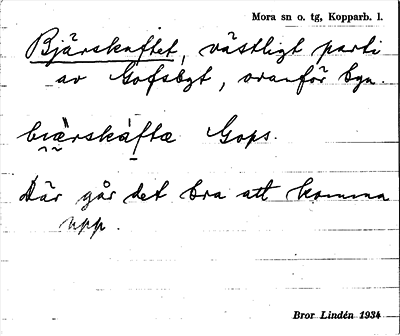 Mora sn o. tg, Kopparb. l.
Bjärskaftet, västligt parti
av Gofsbgt, ovanför byn.
biærskáftæ Gops.
Där går det bra att komma
upp.
Bror Lindén 1934